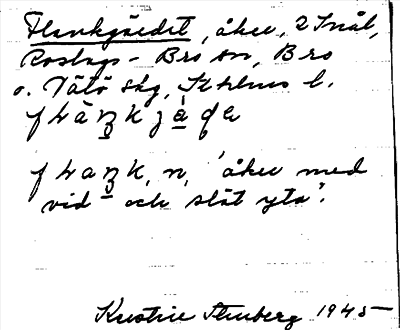 Flankgärdet, åker, 2 Snål,
Roslags-Bro sn, Bro
o. Vätö skg, Sthlms l.
"åker med
vid och slät yta".
Kristine Stenberg 1945